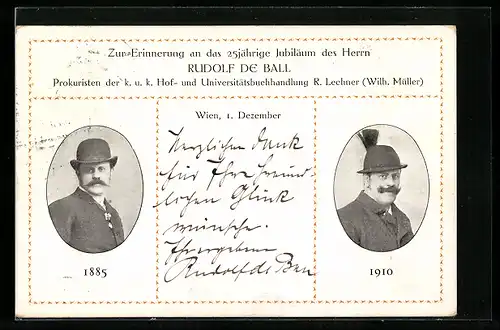 Zur Erinnerung an das 25jährige Jubiläum des Herrn
RUDOLF DE BALL
Prokuristen der k. u. k. Hof- und Universitätsbuchhandlung R. Lechner (Wilh. Müller)
Wien, 1. Dezember
Herzlichen Dank
für Ihre freund-
lichen Glück
wünsche.
Ihr ergebener
Rudolf de Ball
1885
1910